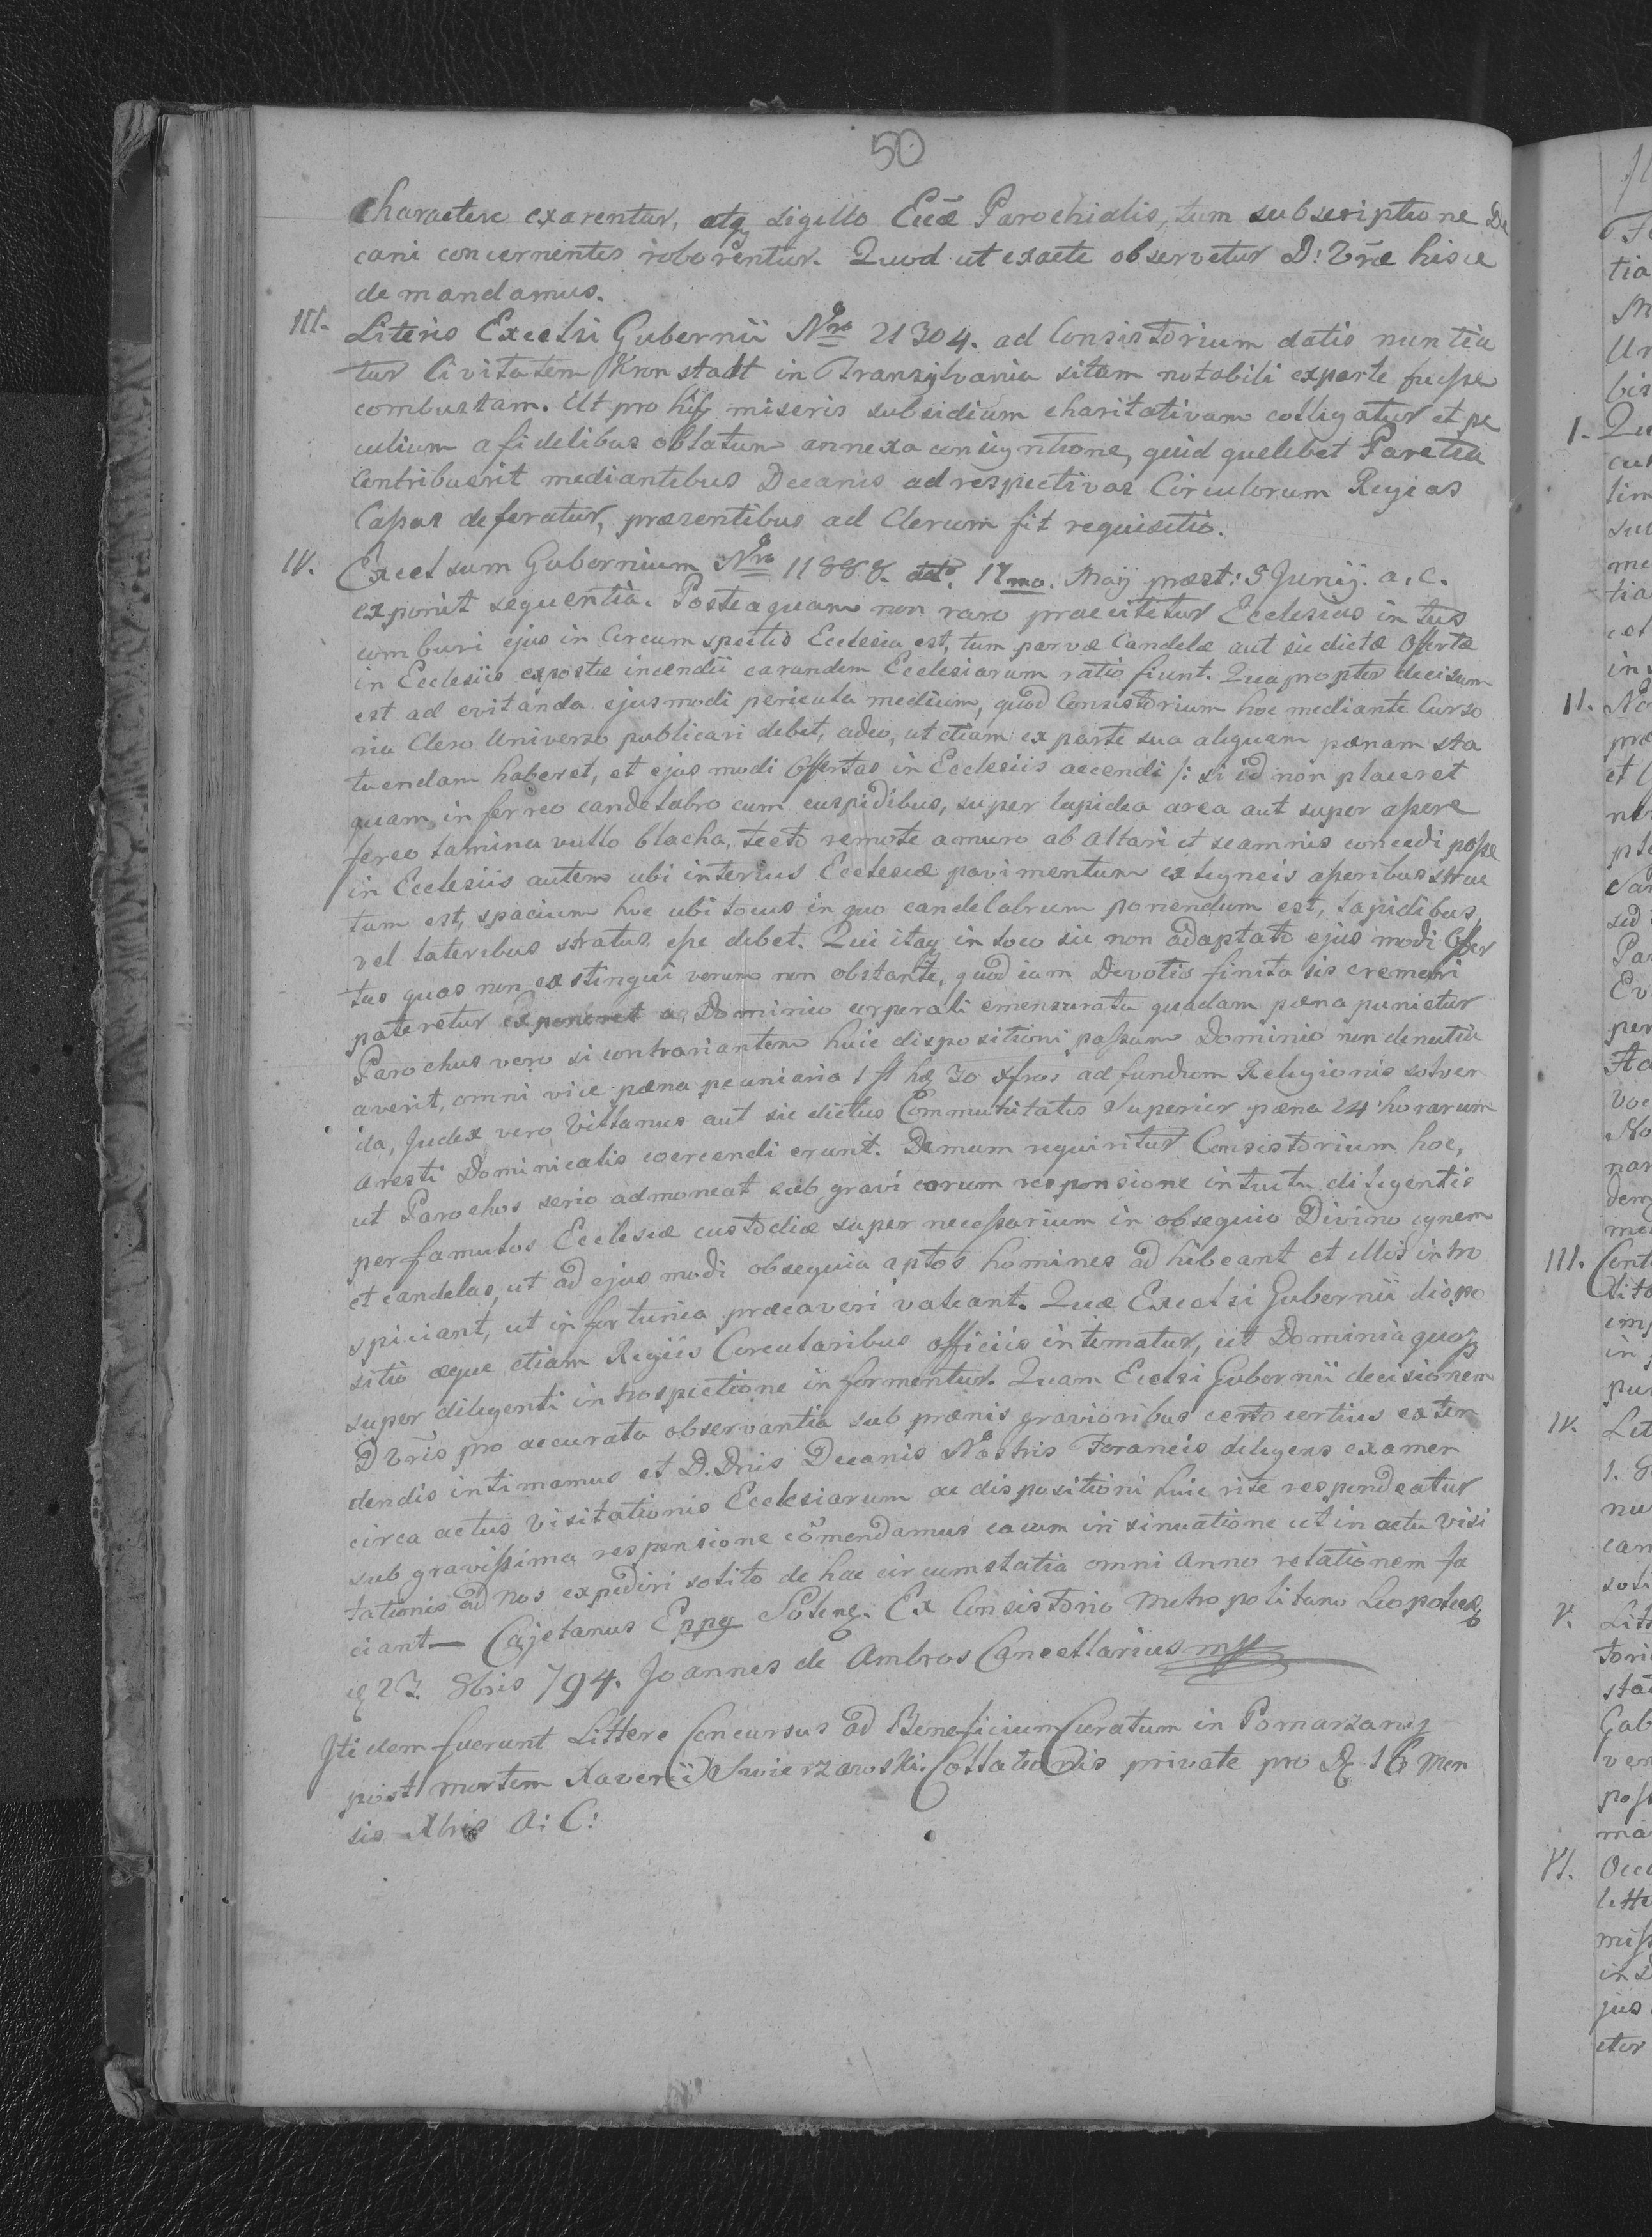 50
charactere exarentur, atq sigillo Eccæ Parochialis, tum subscriptione De
cani concernentis roborentur. Quod ut exacte observetur D: Vræ hisce
demandamus.
III. Literis Excelsi Gubernii Nro 21304. ad Consistorium datis nuntia
tur Civitatem Kronstadt in Transylvania sitam notabili exparte fuisse
combustam. Ut pro his miseris subsidium charitativum colligatur et pe
culium a fidelibus oblatum annexa consigntione, quid quelibet Parochia
Contribuerit mediantibus Decanis ad respectivas Circulorum Regias
Cassas deferatur, præsentibus ad Clerum fit requisitio.
IV. Excelsum Gubernium Nro 11888. dto. 17ma. Maij præst: 5 Junij. a. c.
exponit sequentia. Posteaquam non raro præcititur Ecclesias intus
comburi ejus in Circumspectio Ecclesia est, tum parvæ Candelæ aut sic dictæ Offertæ
in Ecclesiis expositæ incendii earundem Ecclesiarum ratio fiunt. Quapropter decisum
est ad evitanda ejusmodi pericula medium, quod Consistorium hoc mediante Curso
ria Clero Universo publicari debet, adeo, ut etiam ex parte sua aliquam pænam sta
tuendam haberet, et ejus modi Offertas in Ecclesiis accendi /: si id non placeret
quam in ferreo candelabro cum cuspidibus, super lapidea area aut super assere
ferreo lamina vulto blacha, tecto remote a muro ab Altari et scamnis concedi posse
in Ecclesiis autem ubi interius Ecclesiæ pavimentum ex ligneis asseribus struc
tum est, spacium hoc ubi locus in quo candelabrum ponendum est, lapidibus,
vel lateribus stratus esse debet. Qui itaq in loco sic non adaptato ejus modi Offer
tas quas non exstingui verum non obstante, quod jam Devotio finita sis cremari
pateretur exponeret a Dominio corporali emensurata quadam pæna punietur
Parochus vero si contrariantem huic dispositioni passum Dominio non denutia
averit, omni vice pæna pecuniaria 1 fl 30 xfros ad fundum Religionis solven
da, Judex vero Villanus aut sic dictus Communitatis Superior pæna 24 horarum
aresti Dominicalis coercendi erunt. Demum requiritur Consistorium hoc,
ut Parochos serio admoneat sub gravi eorum responsione intuitu diligentis
per famulos Ecclesiæ custodiæ super necessarium in obsequio Divino ignem
et candelas, ut ad ejus modi obsequia aptos homines adhibeant et illis intro
spiciant, ut infortunia præcaveri valeant. Quæ Excelsi Gubernii dispo
sitio æque etiam Regiis Circularibus officiis intimatur, ut Dominia quoq
super diligenti introspectione informentur. Quam Excelsi Gubernii decisionem
D Vris pro accurata observantia sub pænis gravioribus certo certius exten
dendis intimamus et D. Dnis Decanis Nostris Foraneis diligens examen
circa actus Visitationis Ecclesiarum ac dispositioni huic rite respondeatur
sub gravissima responsione cômendamus eacum insinuatione ut in actu Visi
tationis ad nos expediri solito de hac circumstatia omni Anno relationem fa
ciant — Cajetanus Eppq Soteng. Ex Consistorio Metropolitano Leopoliens
27. 8bris 794. Joannes de Ambros Cancellarius mp
Itidem fuerunt Littere Concursus ad Beneficium Curatum in Pomarzany
post mortem Xaverii Swierzawski Collationis private pro D 16 Men
sis Xbris A: C: